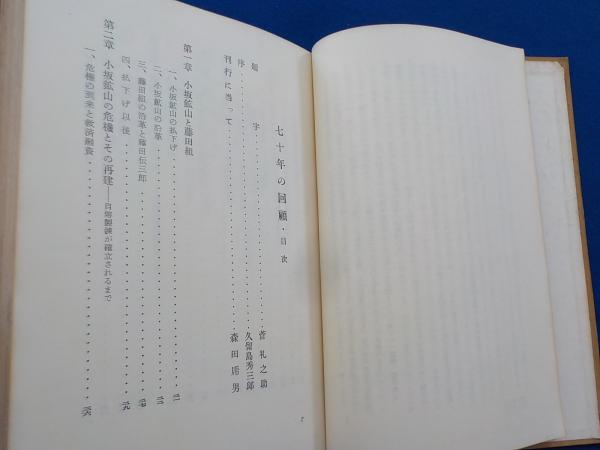 七十年の回顧・目次
題字・・・・・・・・・・菅礼之助
序・・・・・・・・・・久留島秀三郎
刊行に当って・・・・・・・・・・森田甫男
第一章 小坂鉱山と藤田組
一、小坂鉱山の払下げ・・・・・・・・・・
二、小坂鉱山の沿革・・・・・・・・・・
三、藤田組の沿革と藤田伝三郎・・・・・・・・・・
四、払下げ以後・・・・・・・・・・
第二章 小坂鉱山の危機とその再建――自熔製錬が確立されるまで
一、危機の到来と救済融資・・・・・・・・・・